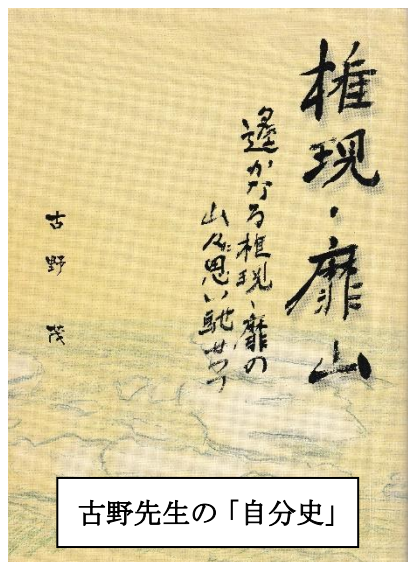 権現・靡山
遙かなる権現・靡の
山々に思い馳せつつ
古野 茂
古野先生の「自分史」